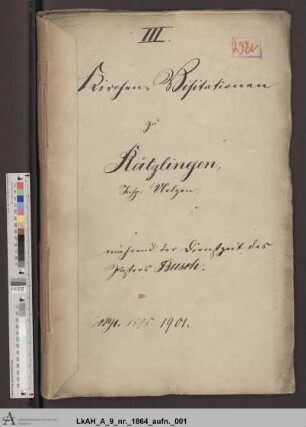 III
2982
Kirchen-Visitationen
zu
Rätzlingen,
Insp. Uelzen
während der Dienstzeit des
Pastors Busch.
1895. 1901.
LkAH_A_9_nr._1864_aufn._001